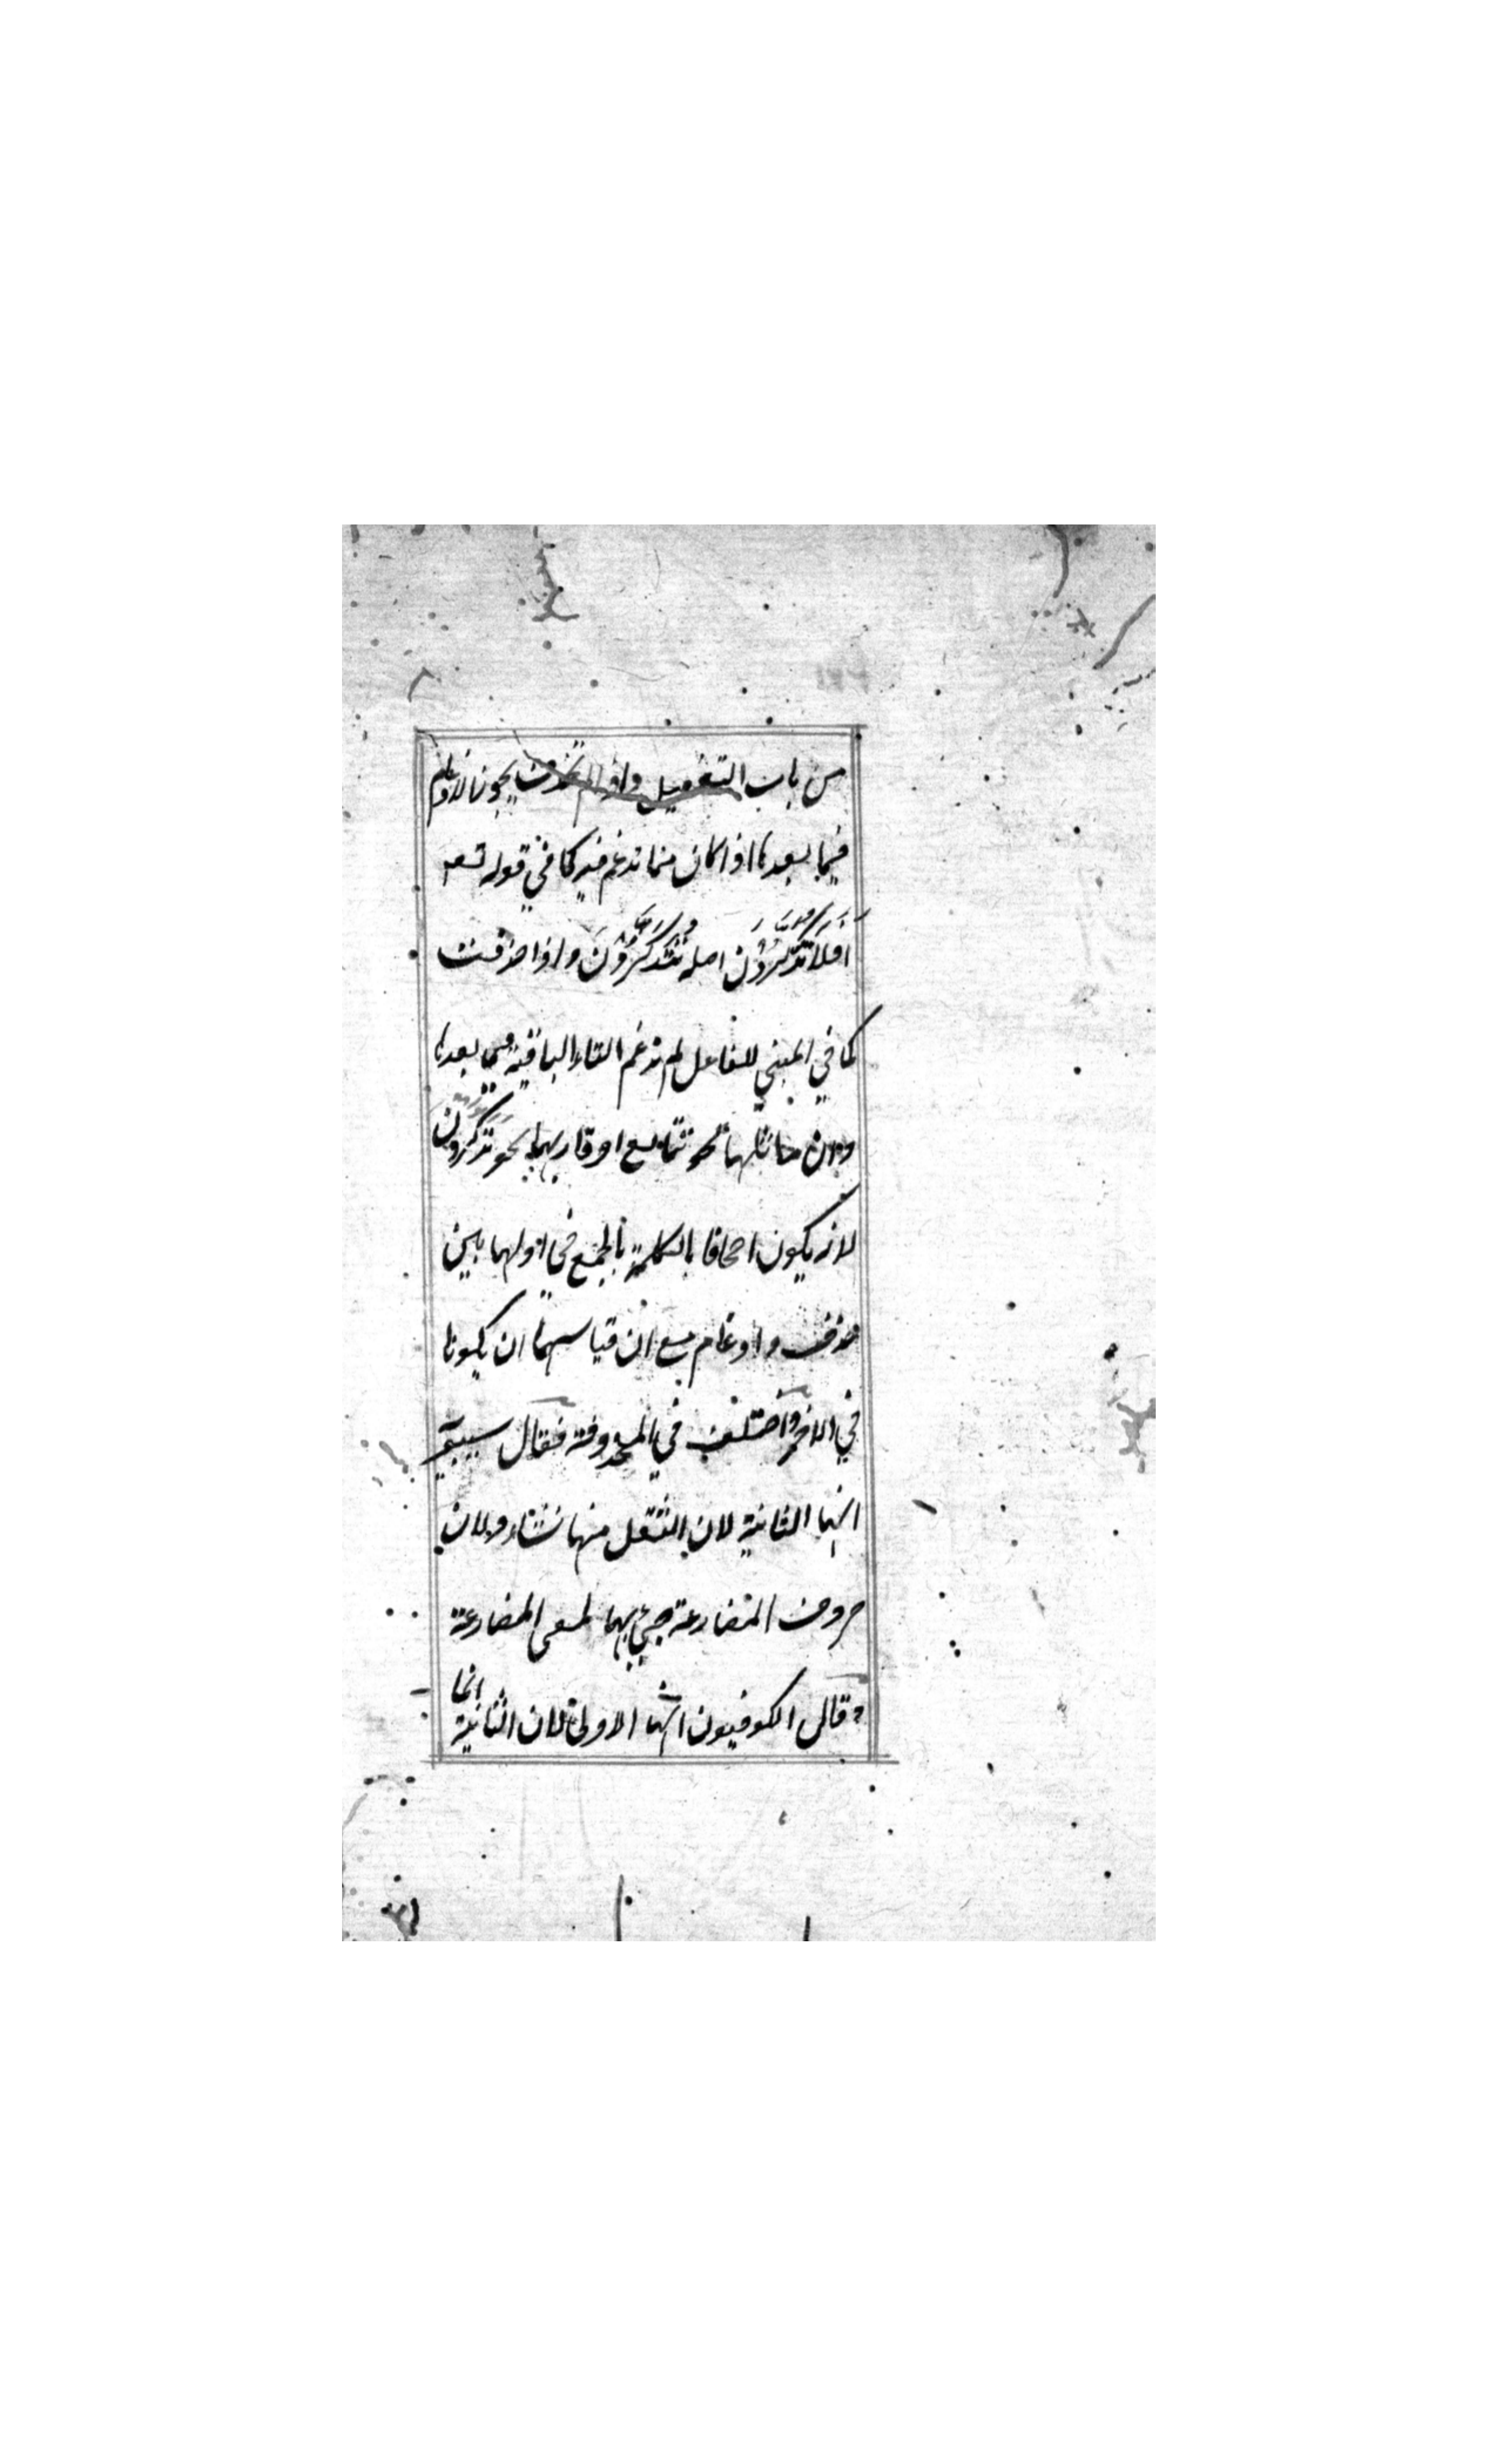 من باب التفعيل واذا لم تحذف يجوز ادغام
فيما بعدها اذا كان مما تدغم فيه كما في قوله تعه
اَفَلَا تَذَّكَّرُوْنَ اصله تَتَذَكَّرُوْنَ واذا حذفت
كما في المبني للفاعل لم تدغم التاء الباقية فيما بعدها
وان ماثلها نحو تتابع او قاربها نحو تذكرون
لانه يكون احجافا بالكلمة بالجمع في اولها بين
حذف وادغام مع ان قياسهما ان يكونا
في الاخر واختلف في المحذوفة فقال سيبويه
انها الثانية لان الثقل منها نشاء ولان
حروف المضارعة جيئ بها لمعنى المضارعة
وقال الكوفيون انها الاولى لان الثانية انما